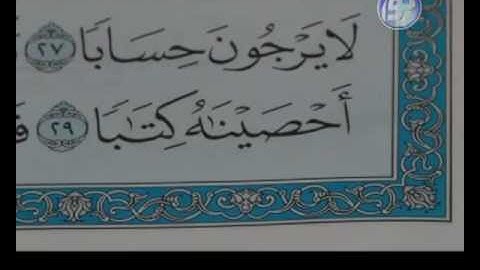 لَا يَرْجُونَ حِسَابًا ٢٧
أَحْصَيْنَٰهُ كِتَٰبًا ٢٩